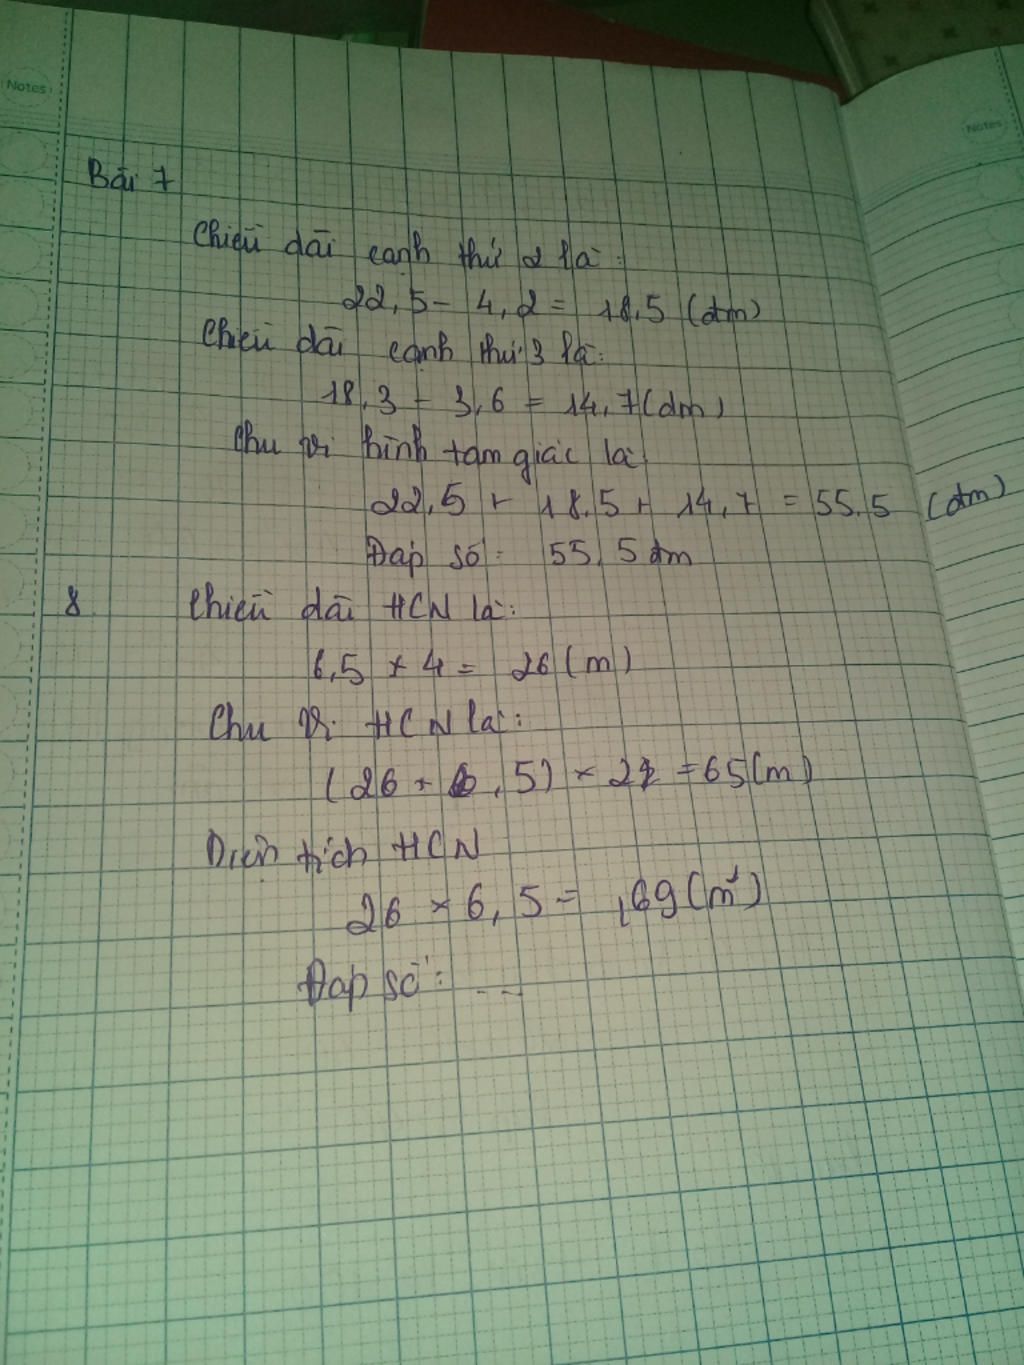 Notes
Notes
Bài 7
Chiều dài cạnh thứ 2 là:
22,5 - 4,2 = 18,5 (dm)
Chiều dài cạnh thứ 3 là:
18,3 - 3,6 = 14,7 (dm)
Chu vi hình tam giác là:
22,5 + 18,5 + 14,7 = 55,5 (dm)
Đáp số: 55,5 dm
8 Chiều dài HCN là:
6,5 × 4 = 26 (m)
Chu vi HCN là:
(26 + 6,5) × 2 = 65 (m)
Diện tích HCN
26 × 6,5 = 169 (m²)
Đáp số: ...